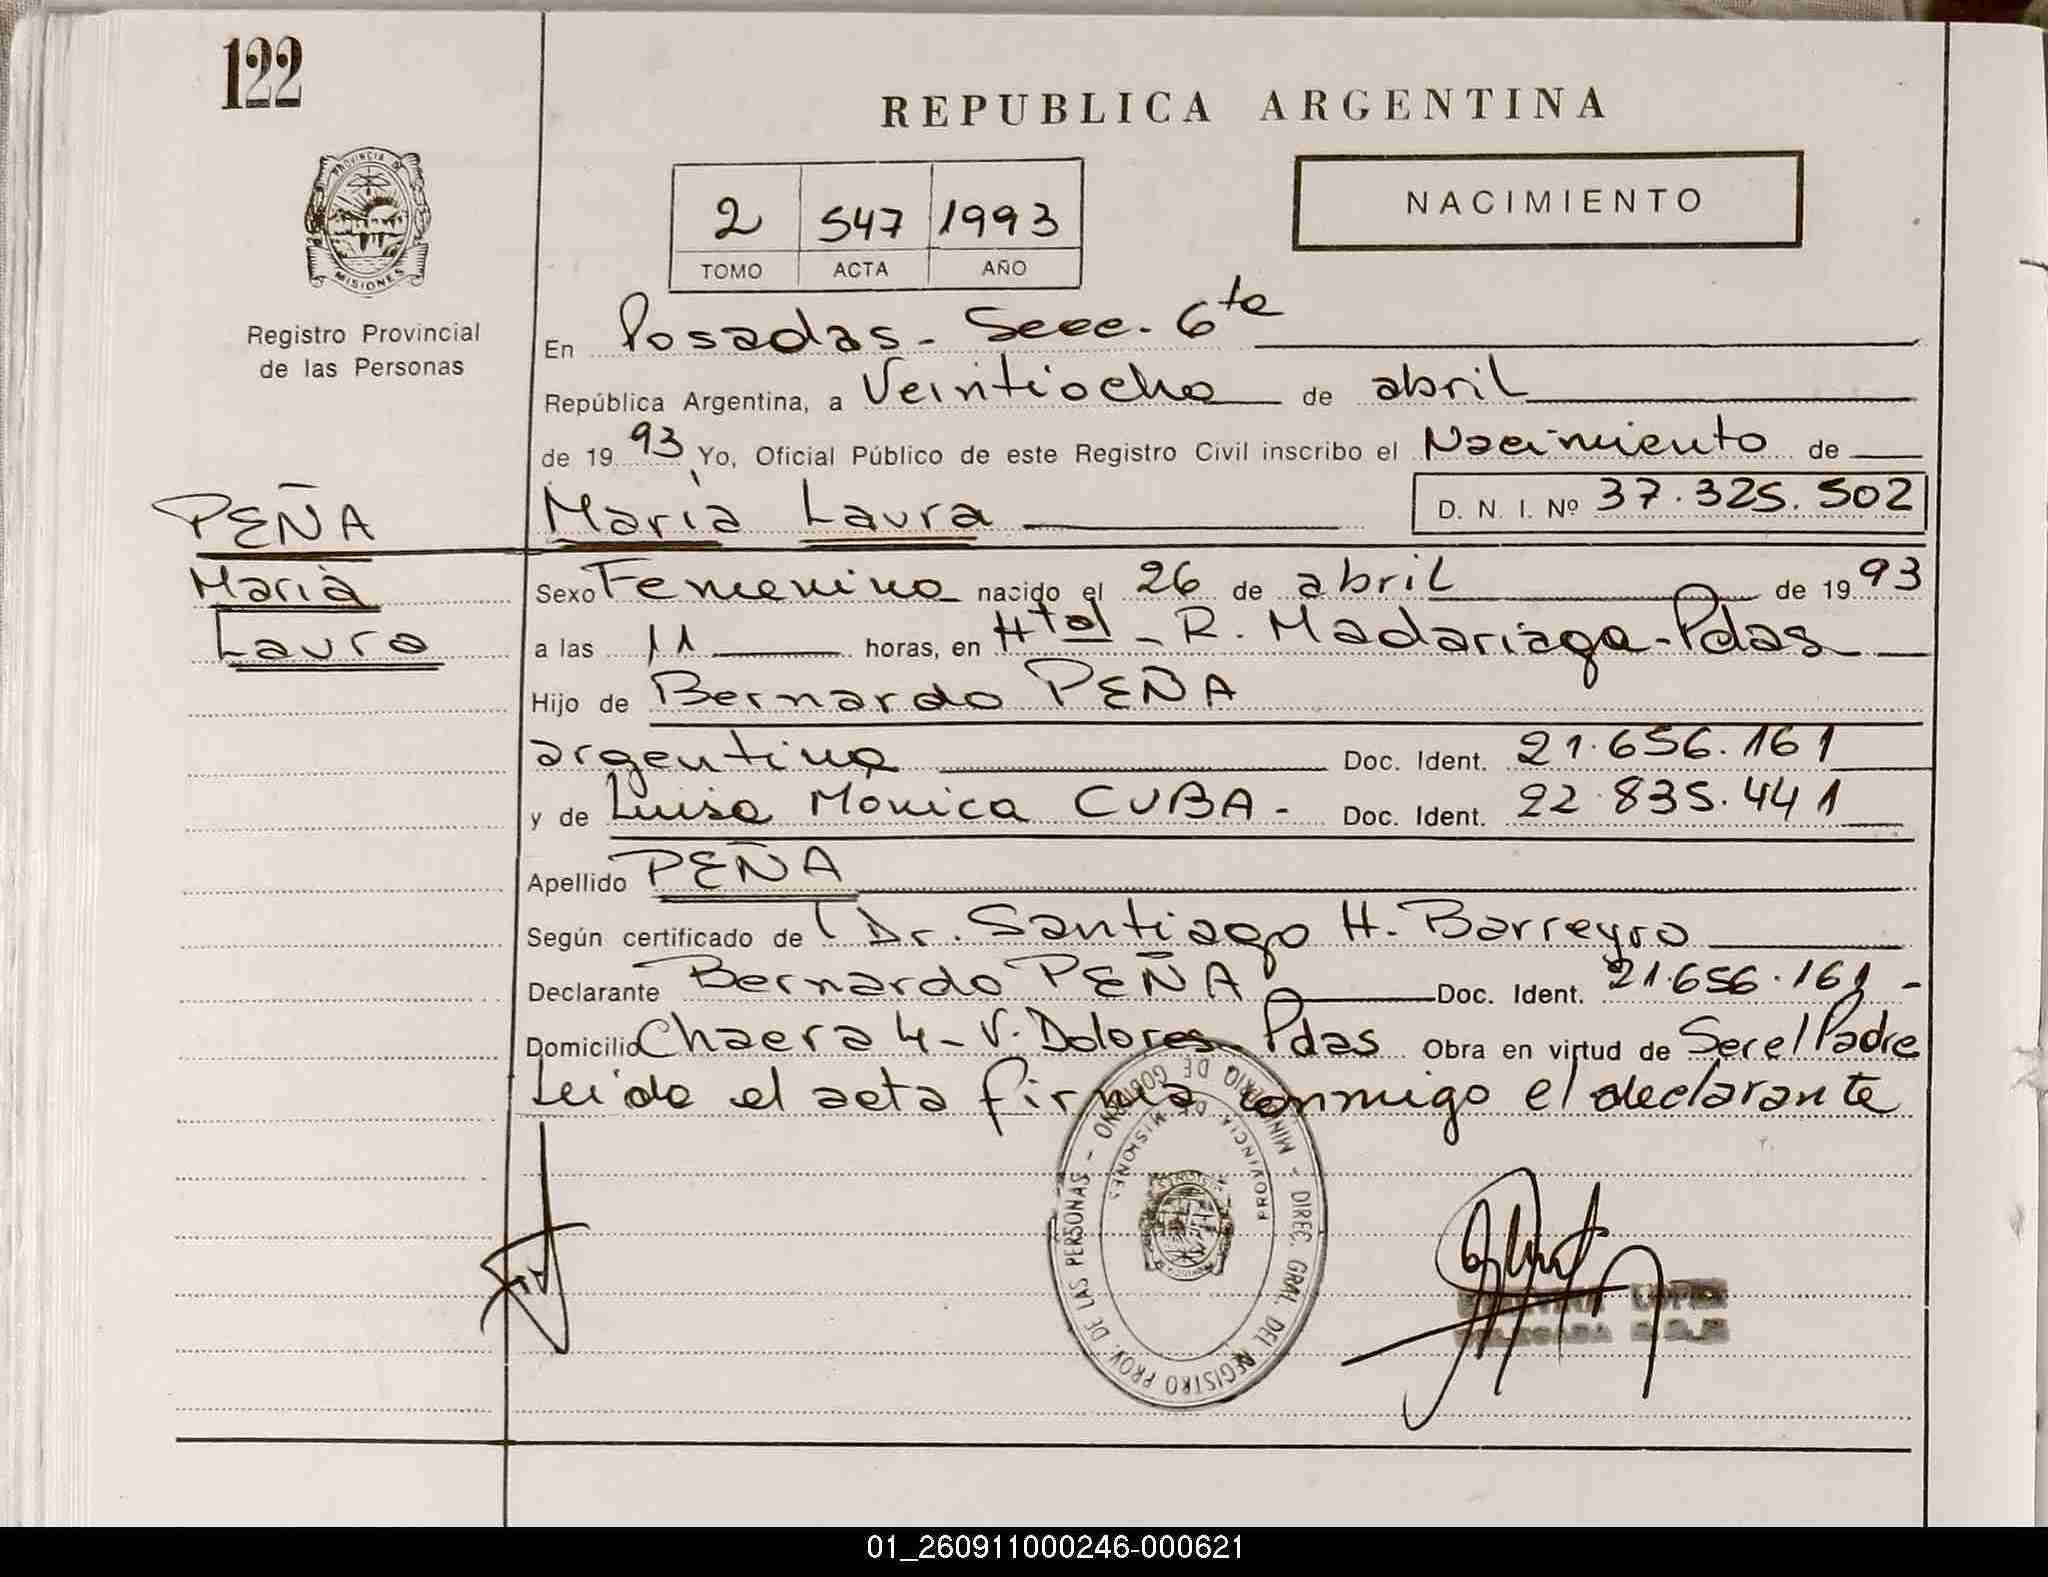 122
REPUBLICA ARGENTINA
PROVINCIA DE
MISIONES
Registro Provincial
de las Personas
NACIMIENTO
2 547 1993
TOMO ACTA AÑO
En Posadas - Secc. 6ta
República Argentina, a Veintiocho de abril
de 19 93 Yo, Oficial Público de este Registro Civil inscribo el Nacimiento de
PEÑA
María
Laura
María Laura D. N. I. Nº 37.325.502
Sexo Femenino nacido el 26 de abril de 19 93
a las 11 horas, en Htal - R. Madariaga - Pdas
Hijo de Bernardo PEÑA
argentino Doc. Ident. 21.656.161
y de Luisa Mónica CUBA - Doc. Ident. 22.835.441
Apellido PEÑA
Según certificado de Dr. Santiago H. Barreyro
Declarante Bernardo PEÑA Doc. Ident. 21.656.161 -
Domicilio Chacra 4 - V. Dolores - Pdas Obra en virtud de Ser el Padre
Leída el acta firma conmigo el declarante
MINISTERIO DE GOBIERNO - DIREC. GRAL. DEL REGISTRO PROV. DE LAS PERSONAS -
PROVINCIA DE MISIONES
LOPEZ
DELEGADA
01_260911000246-000621